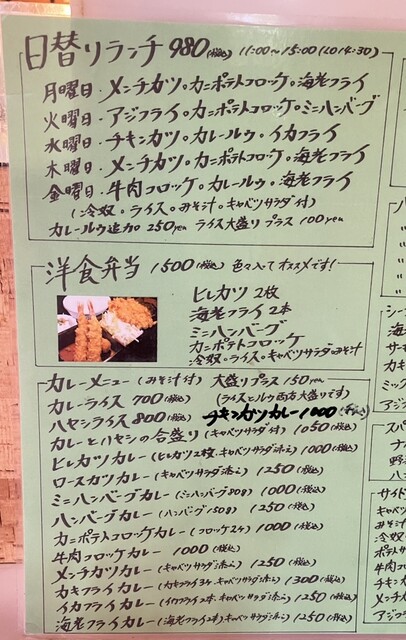 日替りランチ 980(税込) 11:00〜15:00(LO14:30)
月曜日・メンチカツ。カニポテトコロッケ。海老フライ
火曜日・アジフライ。カニポテトコロッケ。ミニハンバーグ
水曜日・チキンカツ。カレールゥ。イカフライ
木曜日・メンチカツ。カニポテトコロッケ。海老フライ
金曜日・牛肉コロッケ。カレールゥ。海老フライ
(冷奴。ライス。みそ汁。キャベツサラダ付)
カレールゥ追加 250yen ライス大盛り プラス 100yen
洋食弁当 1500(税込) 色々入ってオススメです!
ヒレカツ 2枚
海老フライ 2本
ミニハンバーグ
カニポテトコロッケ
冷奴。ライス。キャベツサラダ。みそ汁
カレーメニュー (みそ汁付) 大盛りプラス 150yen
(ライスとルゥ両方大盛りです)
カレーライス 700(税込)
ハヤシライス 800(税込) チキンカツカレー 1000(税込)
カレーとハヤシの合盛り(キャベツサラダ付) 1050(税込)
ヒレカツカレー(ヒレカツ2枚.キャベツサラダ添え) 1000(税込)
ロースカツカレー(キャベツサラダ添え) 1250(税込)
ミニハンバーグカレー(ミニハンバーグ80g) 1000(税込)
ハンバーグカレー(ハンバーグ150g) 1250(税込)
カニポテトコロッケカレー(コロッケ2ケ) 1000(税込)
牛肉コロッケカレー 1000(税込)
メンチカツカレー(キャベツサラダ添え) 1250(税込)
カキフライカレー(カキフライ3ケ.キャベツサラダ添え) 1300(税込)
イカフライカレー(イカフライ2本.キャベツサラダ添え) 1250(税込)
海老フライカレー(海老フライ2本.キャベツサラダ添え) 1250(税込)
サイド
キャベ
みそ汁
冷奴
ポテトサ
牛肉コ
チキンカ
メンチカ
アジフラ